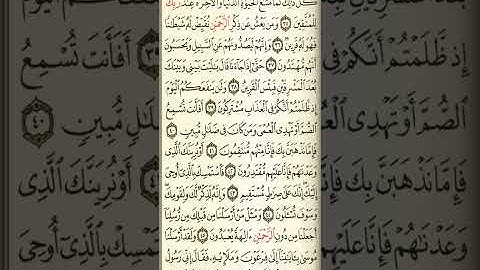 كُلُّ ذَٰلِكَ لَمَّا مَتَٰعُ ٱلْحَيَوٰةِ ٱلدُّنْيَا وَٱلْءَاخِرَةُ عِندَ رَبِّكَ
لِلْمُتَّقِينَ ٣٥ وَمَن يَعْشُ عَن ذِكْرِ ٱلرَّحْمَٰنِ نُقَيِّضْ لَهُۥ شَيْطَٰنًا
فَهُوَ لَهُۥ قَرِينٌ ٣٦ وَإِنَّهُمْ لَيَصُدُّونَهُمْ عَنِ ٱلسَّبِيلِ وَيَحْسَبُونَ
أَنَّهُم مُّهْتَدُونَ ٣٧ حَتَّىٰٓ إِذَا جَآءَنَا قَالَ يَٰلَيْتَ بَيْنِى وَبَيْنَكَ
بُعْدَ ٱلْمَشْرِقَيْنِ فَبِئْسَ ٱلْقَرِينُ ٣٨ وَلَن يَنفَعَكُمُ ٱلْيَوْمَ
إِذ ظَّلَمْتُمْ أَنَّكُمْ فِى ٱلْعَذَابِ مُشْتَرِكُونَ ٣٩ أَفَأَنتَ تُسْمِعُ
ٱلصُّمَّ أَوْ تَهْدِى ٱلْعُمْىَ وَمَن كَانَ فِى ضَلَٰلٍ مُّبِينٍ ٤٠
فَإِمَّا نَذْهَبَنَّ بِكَ فَإِنَّا مِنْهُم مُّنتَقِمُونَ ٤١ أَوْ نُرِيَنَّكَ ٱلَّذِى
وَعَدْنَٰهُمْ فَإِنَّا عَلَيْهِم مُّقْتَدِرُونَ ٤٢ فَٱسْتَمْسِكْ بِٱلَّذِىٓ أُوحِىَ
إِلَيْكَ إِنَّكَ عَلَىٰ صِرَٰطٍ مُّسْتَقِيمٍ ٤٣ وَإِنَّهُۥ لَذِكْرٌ لَّكَ وَلِقَوْمِكَ
وَسَوْفَ تُسْـَٔلُونَ ٤٤ وَسْـَٔلْ مَنْ أَرْسَلْنَا مِن قَبْلِكَ مِن رُّسُلِنَآ
أَجَعَلْنَا مِن دُونِ ٱلرَّحْمَٰنِ ءَالِهَةً يُعْبَدُونَ ٤٥ وَلَقَدْ أَرْسَلْنَا
مُوسَىٰ بِـَٔايَٰتِنَآ إِلَىٰ فِرْعَوْنَ وَمَلَإِيْهِۦ فَقَالَ إِنِّى رَسُولُ